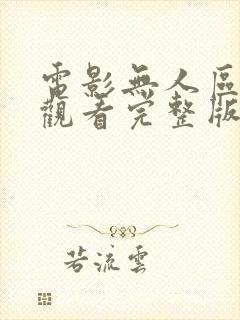 電影無人區
觀看完整版
若流雲